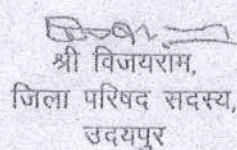 श्री विजयराम,
जिला परिषद सदस्य,
उदयपुर